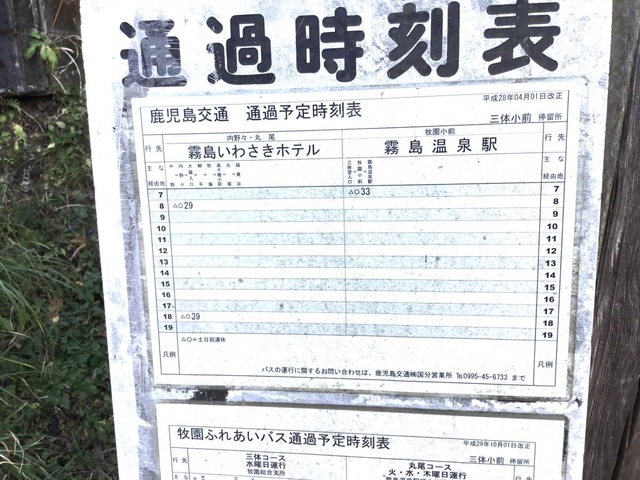 通過時刻表
平成28年04月01日改正
鹿児島交通 通過予定時刻表
三体小前 停留所
行先 内野々・丸尾 牧園小前 行先
霧島いわさきホテル 霧島温泉駅
主な経由地 主な経由地
7 △○33 7
8 △○29 8
9 9
10 10
11 11
12 12
13 13
14 14
15 15
16 16
17 17
18 △○39 18
19 19
凡例 △○=土日祝運休 凡例
バスの運行に関するお問い合わせは、鹿児島交通㈱国分営業所 ℡0995-45-6733 まで
平成29年10月01日改正
牧園ふれあいバス通過予定時刻表
三体小前 停留所
行先 三体コース 丸尾コース 行先
水曜日運行 火・水・木曜日運行
牧園総合支所
主な